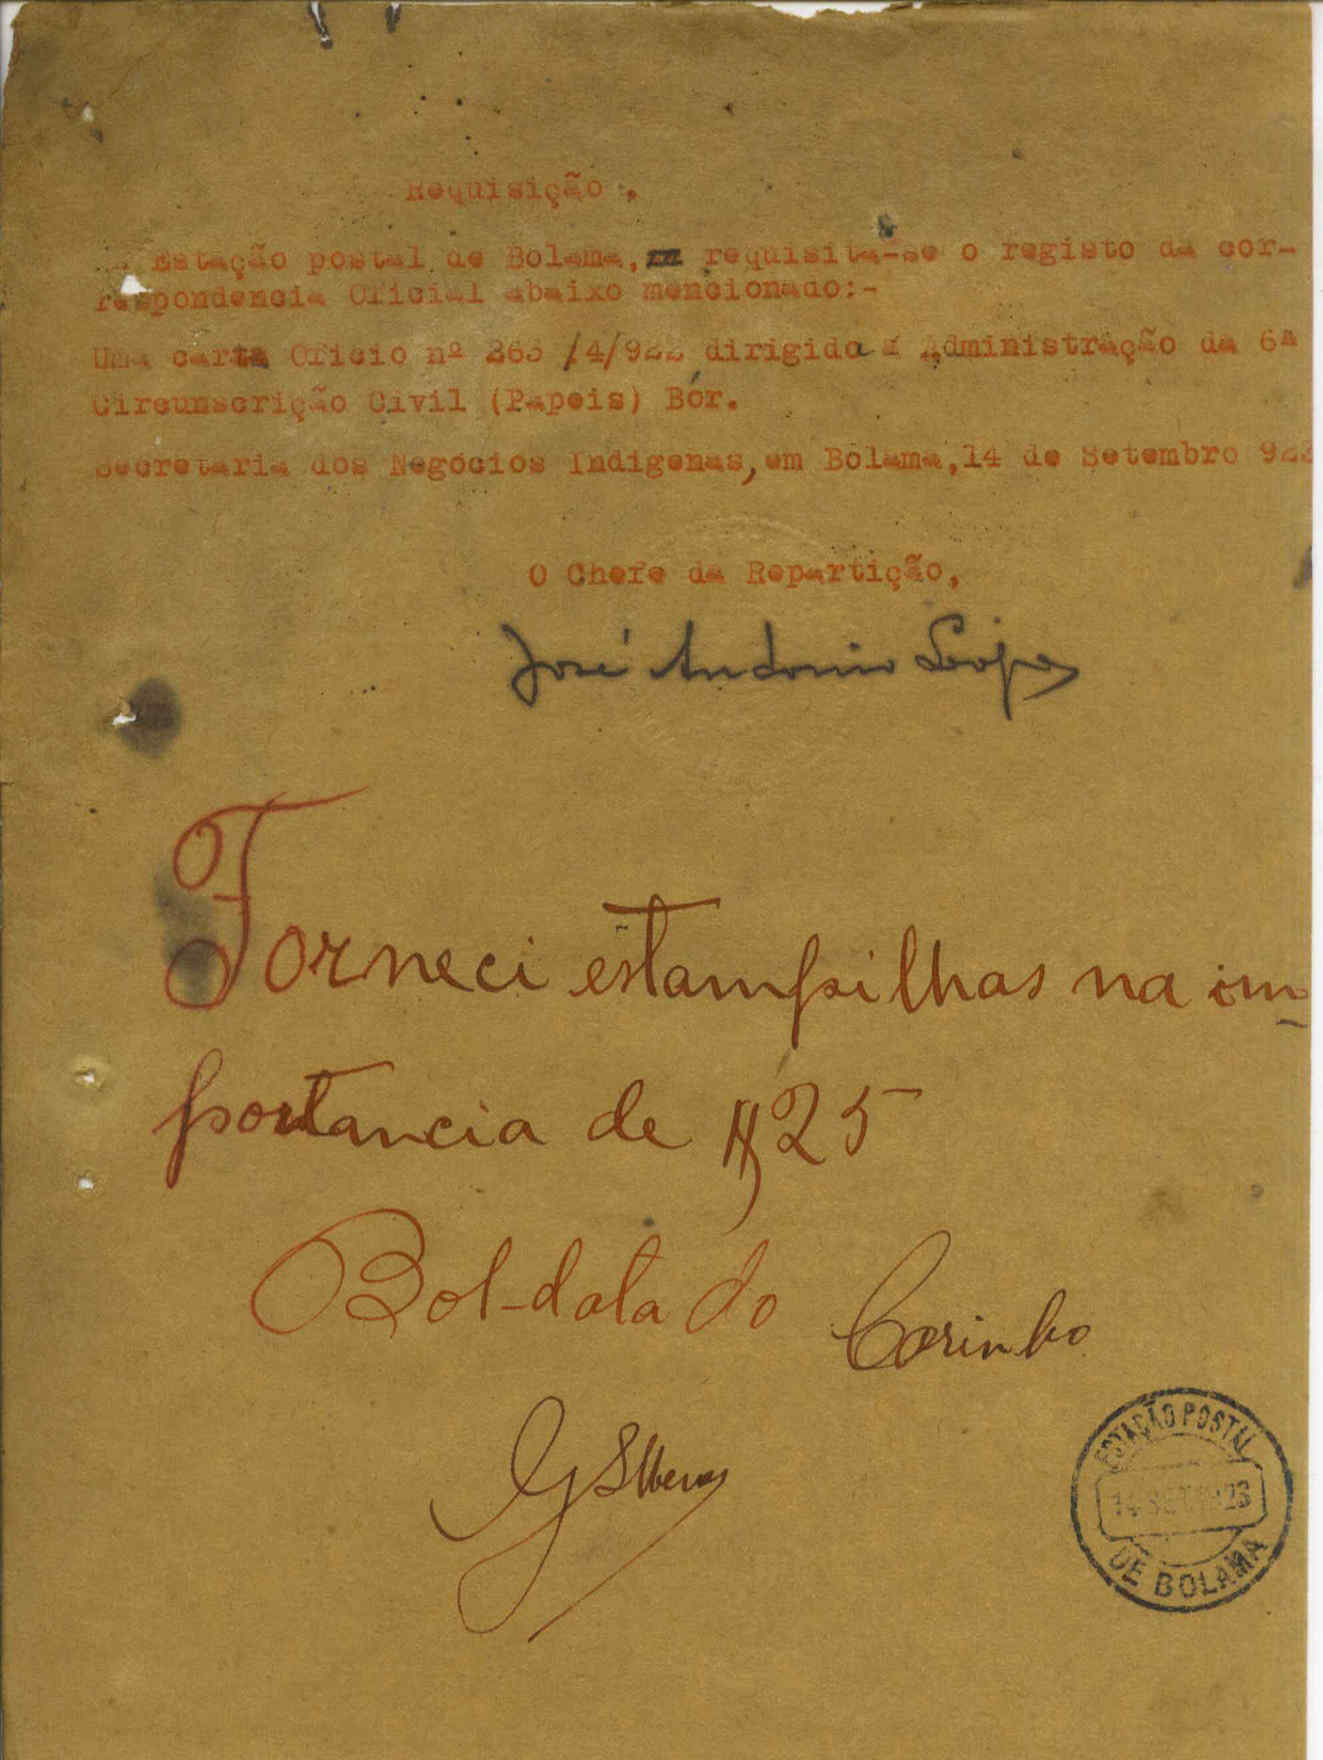 Requisição .
Estação postal de Bolama, requisita-se o registo da cor-
respondencia Oficial abaixo mencionado:-
Uma carta Oficio nº 263 /4/922 dirigida á Administração da 6ª
Circunscrição Civil (Papeis) Bór.
Secretaria dos Negócios Indigenas, em Bolama, 14 de Setembro 923
O Chefe da Repartição,
José Antonio Lopes
Forneci estampilhas na im-
portancia de $25
Bol-data do Carimbo
ESTAÇÃO POSTAL
14 SET. 1923
DE BOLAMA